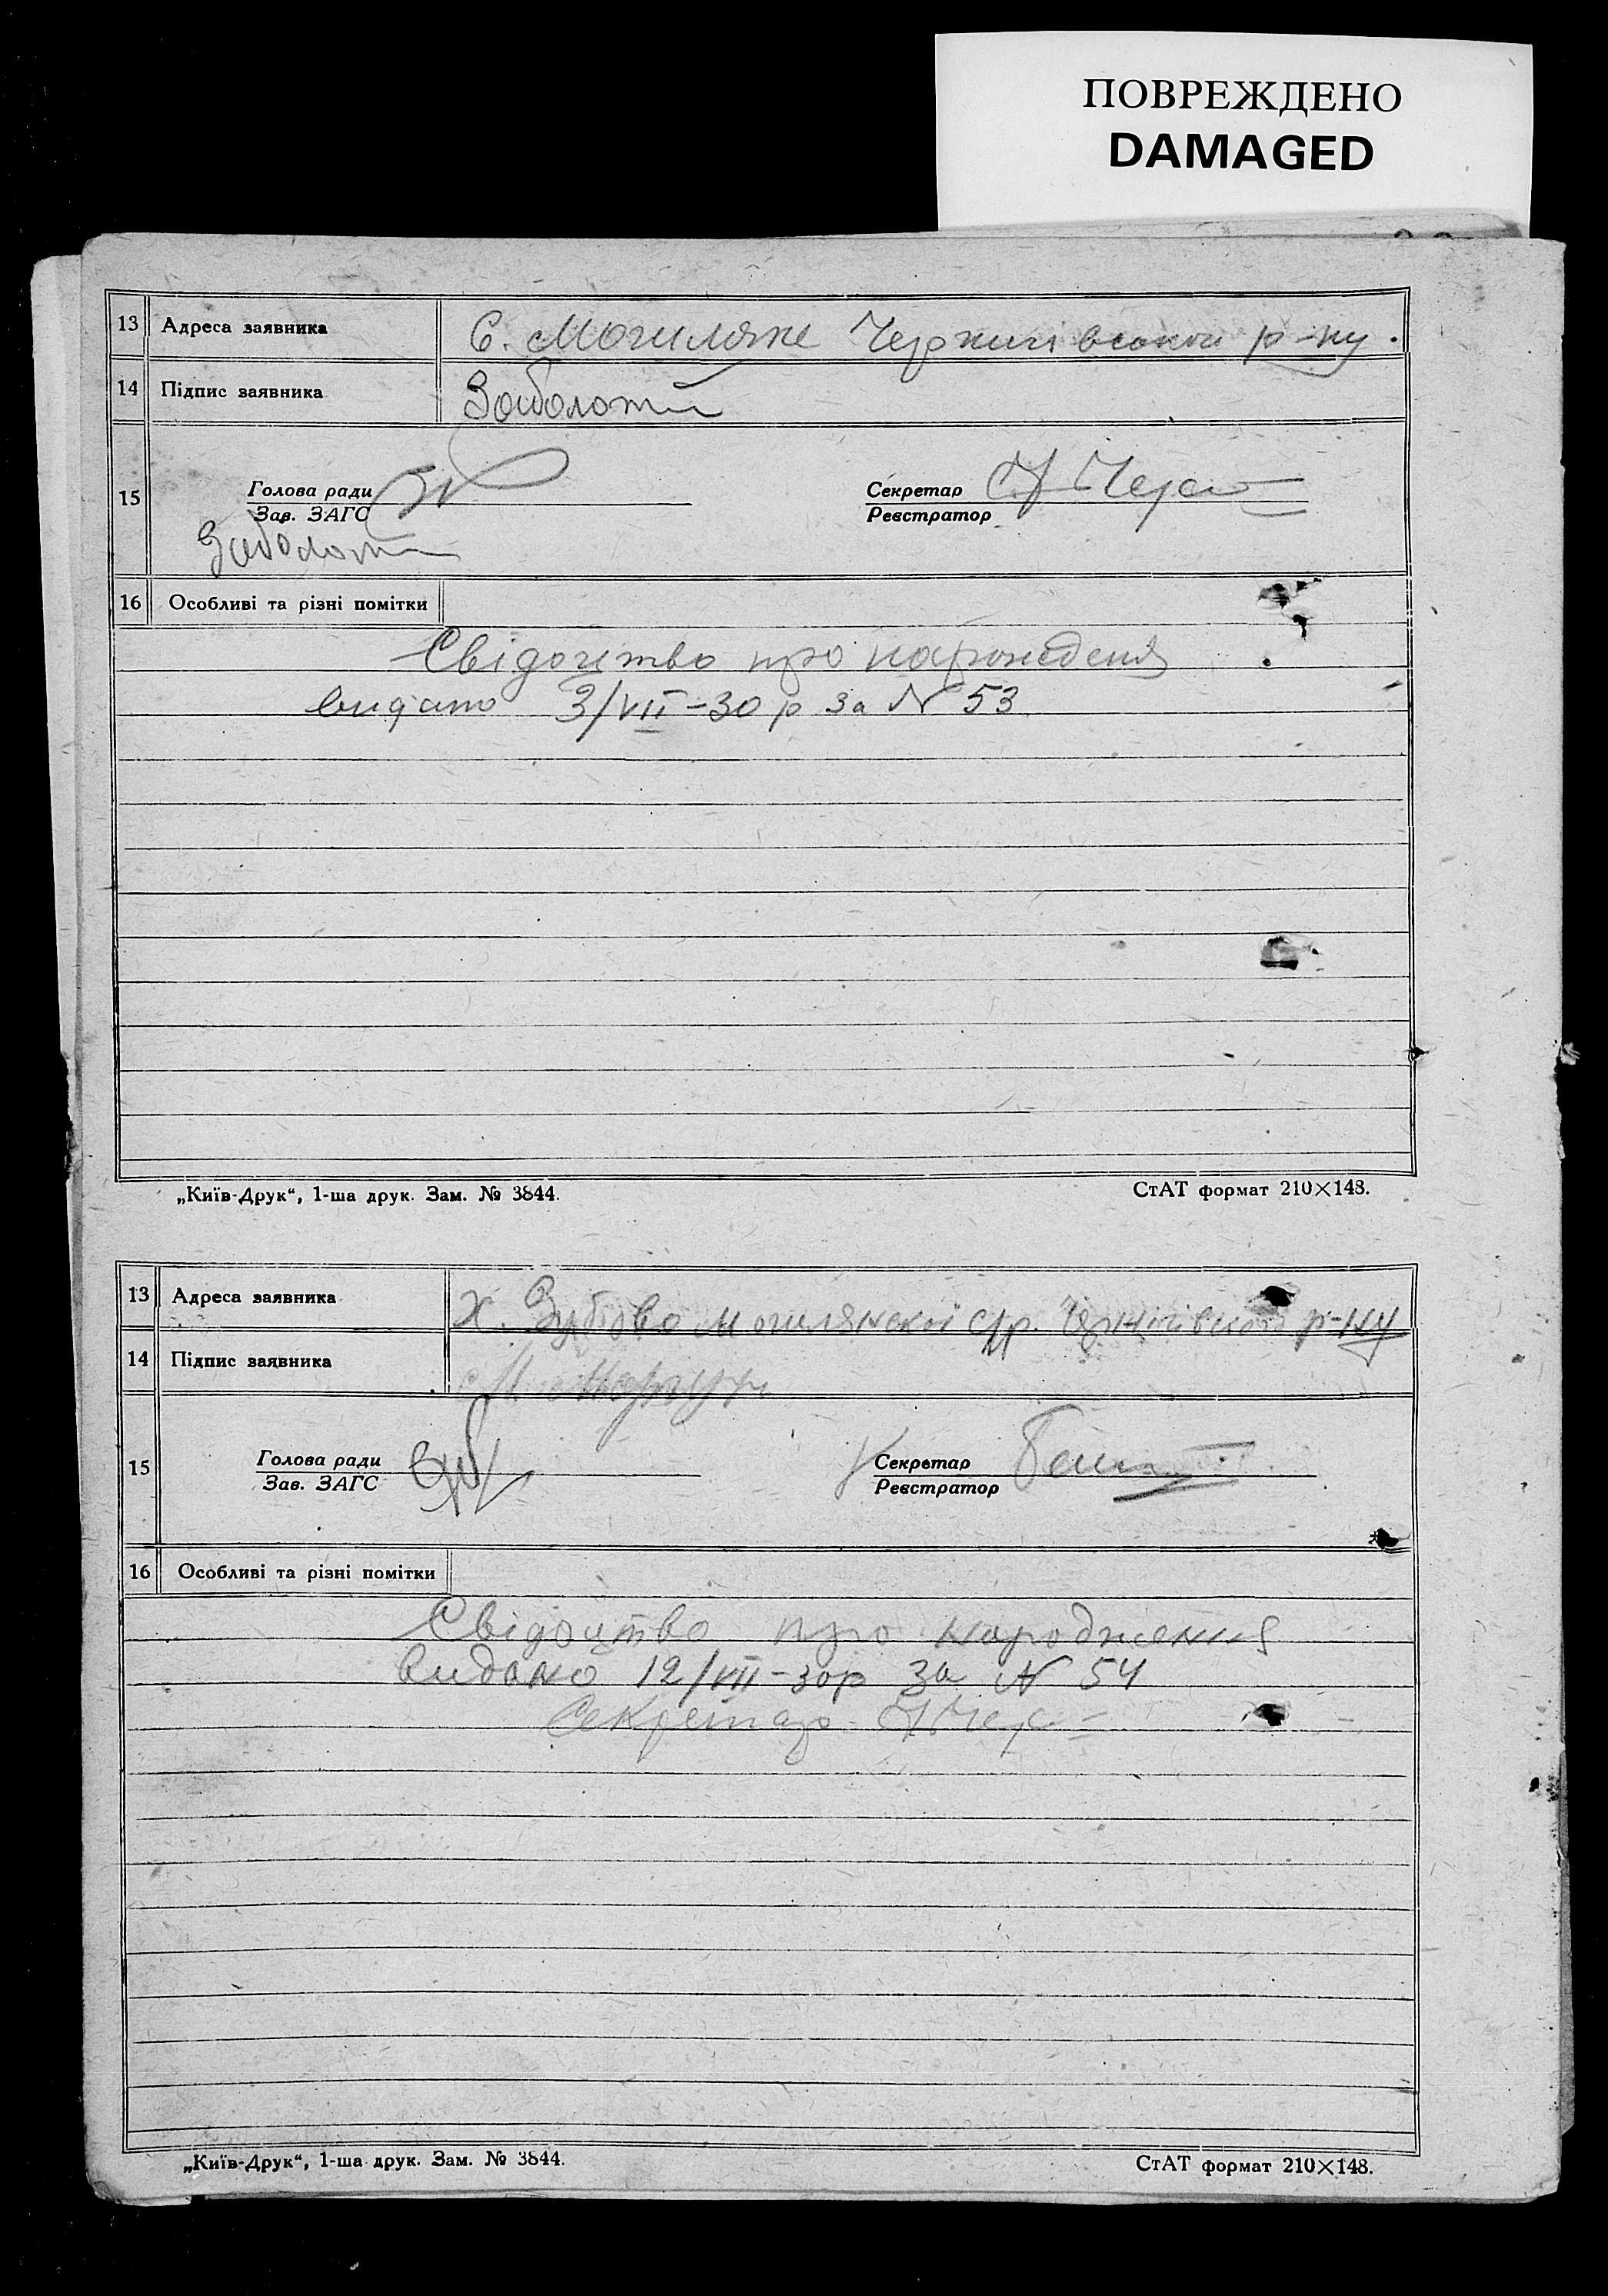 ПОВРЕЖДЕНО
DAMAGED
13 Адреса заявника С. Могиляне Чернигівської р-ну.
14 Підпис заявника Заболотн
15 Голова ради Секретар
Зав. ЗАГС Реєстратор
Заболотн
16 Особливі та різні помітки
Свідоцтво про народжедення
видано 3/VII-30 р за N 53
„Київ-Друк“, 1-ша друк. Зам. № 3844. СтАТ формат 210×148.
13 Адреса заявника х. Зубово Могилянскоі с/р. Чернігівскоі р-ну
14 Підпис заявника
15 Голова ради Секретар
Зав. ЗАГС Реєстратор
16 Особливі та різні помітки
Свідоцтво про народження
видано 12/VII-30р за N 54
Секретар
„Київ-Друк“, 1-ша друк. Зам. № 3844. СтАТ формат 210×148.